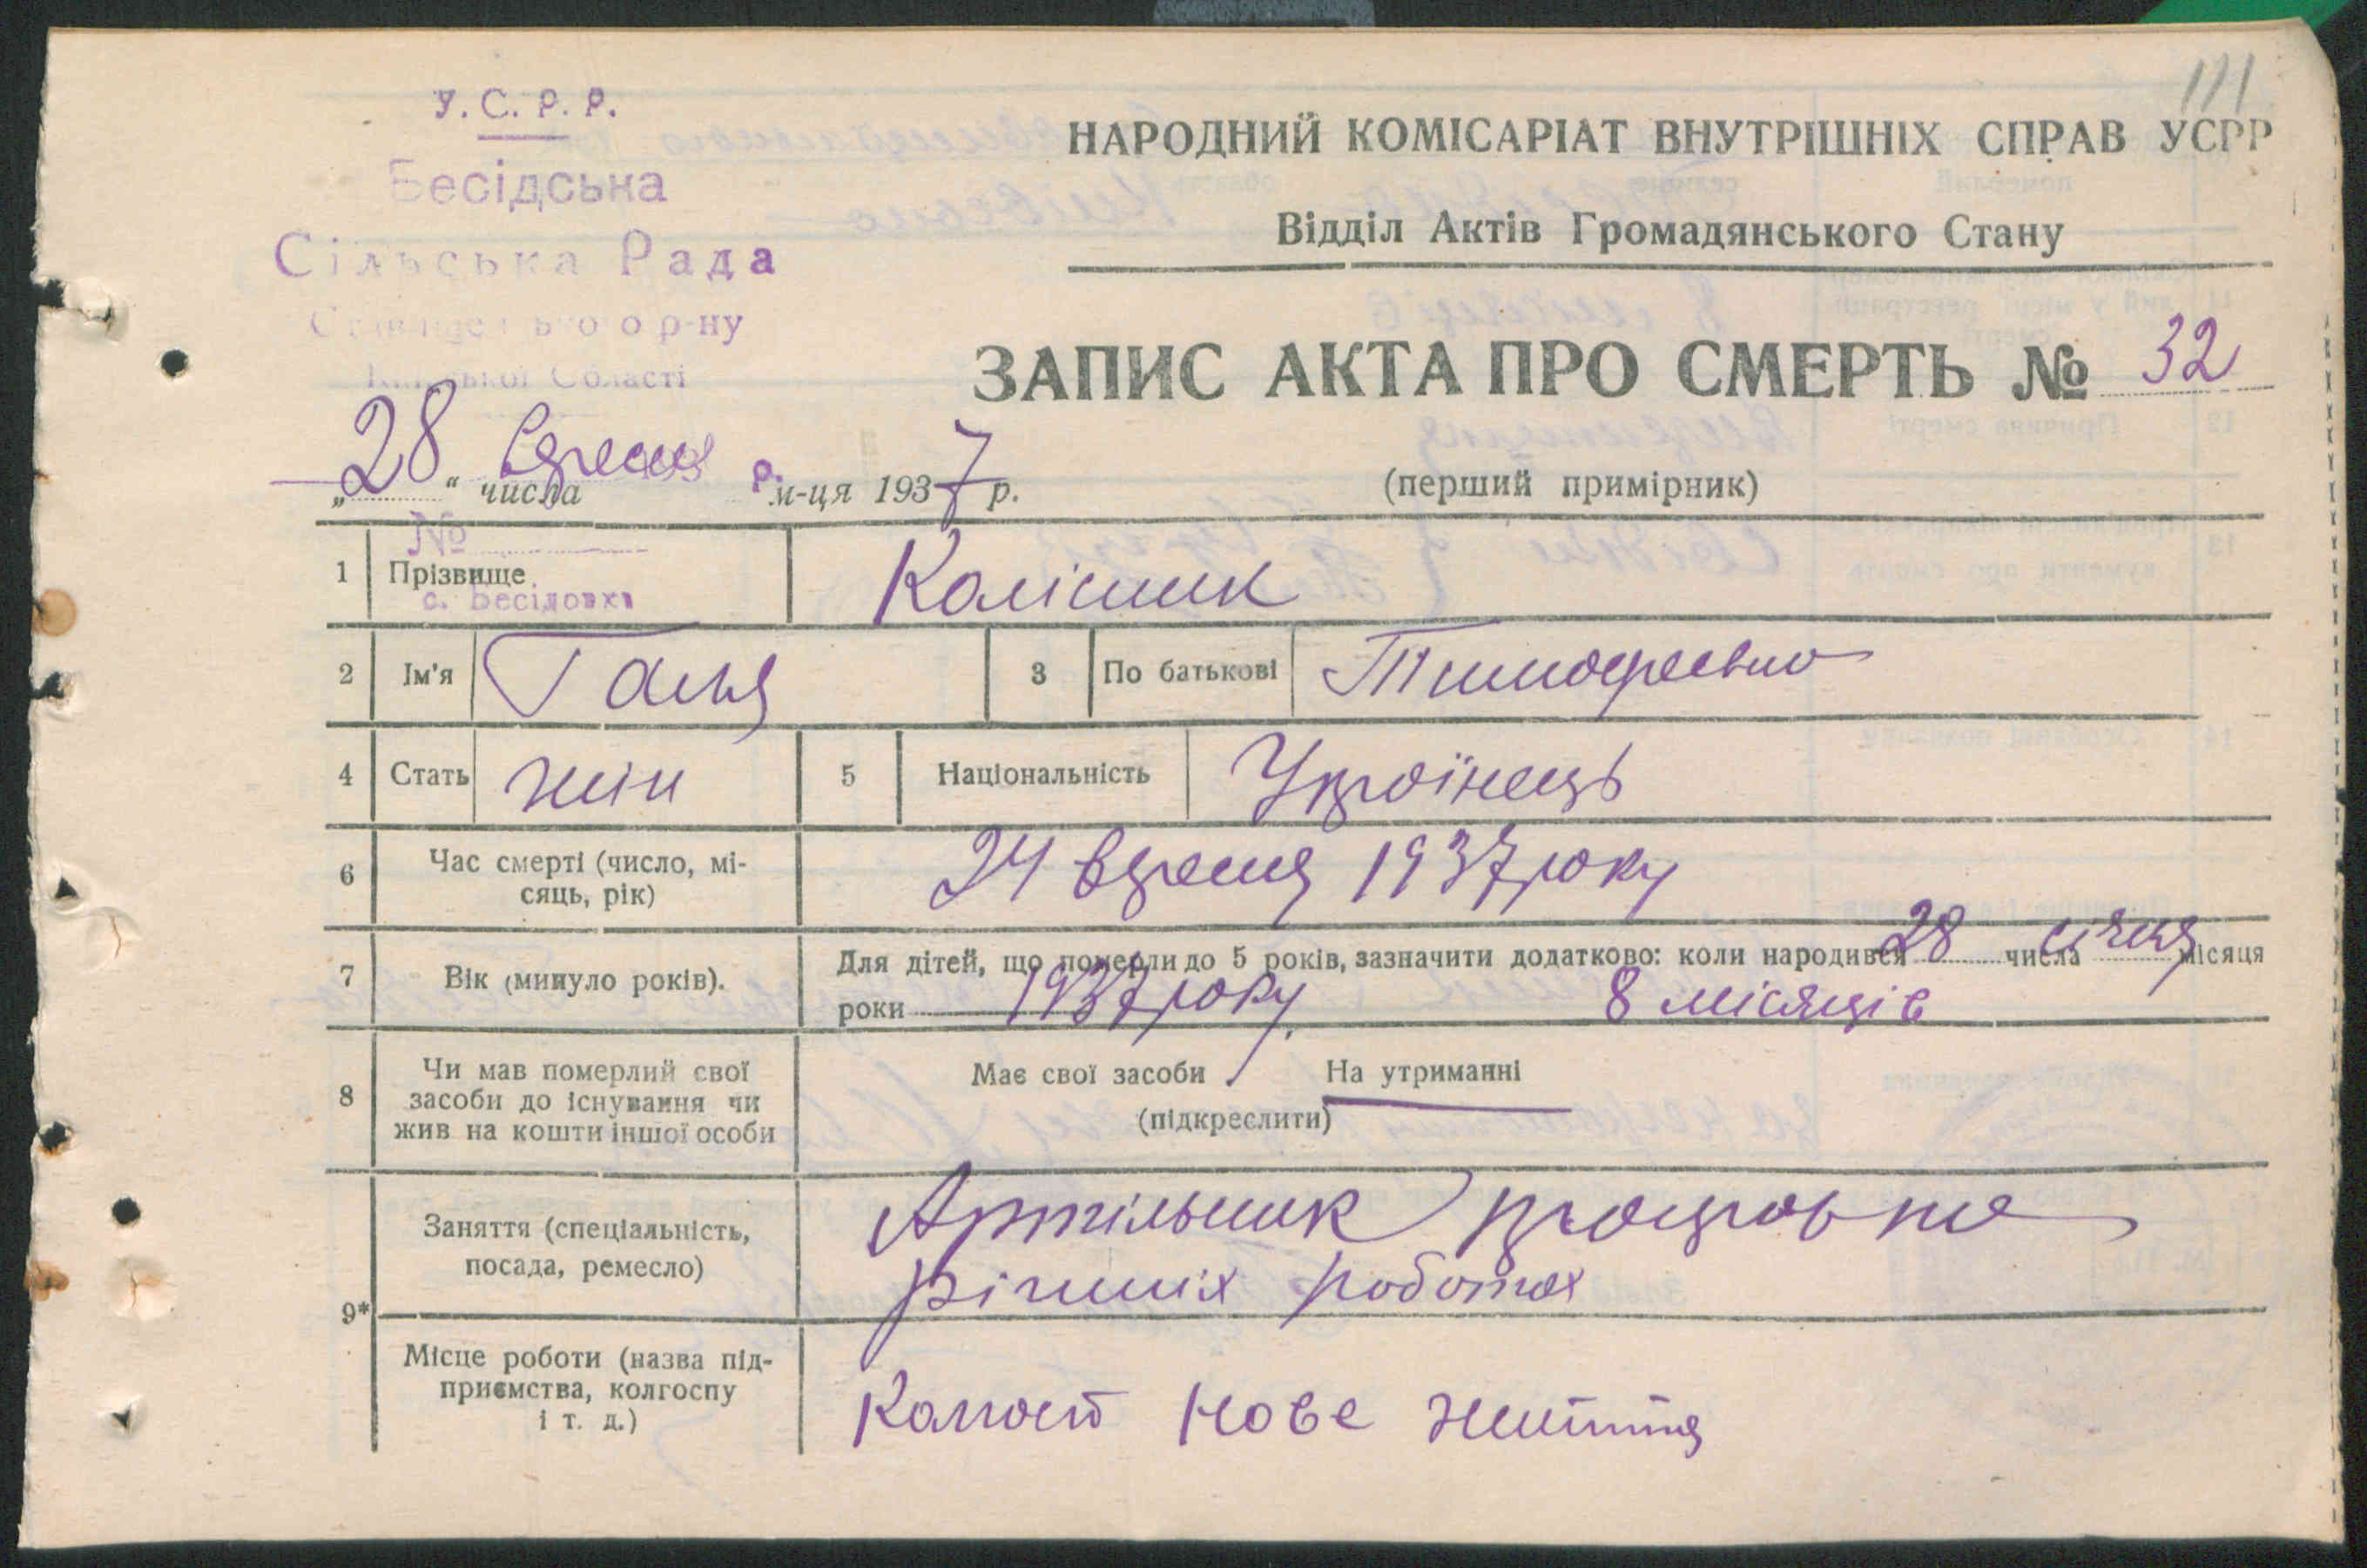 111
У. С. Р. Р.
Бесідська
Сільська Рада
р-ну
Області
НАРОДНИЙ КОМІСАРІАТ ВНУТРІШНІХ СПРАВ УСРР
Відділ Актів Громадянського Стану
ЗАПИС АКТА ПРО СМЕРТЬ № 32
(перший примірник)
„28“ числа вересня м-ця 1937 р.
№
1 Прізвище Колісник
с. Бесідовка
2 Ім'я Ганя 3 По батькові Тимофеевна
4 Стать жін 5 Національність Українець
6 Час смерті (число, мі-
сяць, рік) 24 вересня 1937 року
7 Вік (минуло років). Для дітей, що померли до 5 років, зазначити додатково: коли народився 28 числа січня місяця
роки 1937 року 8 місяців
8 Чи мав померлий свої
засоби до існування чи
жив на кошти іншої особи
Має свої засоби На утриманні
(підкреслити)
9* Заняття (спеціальність,
посада, ремесло)
Артільник працював на
різних роботах
Місце роботи (назва під-
приємства, колгоспу
і т. д.)
Колгосп Нове життя